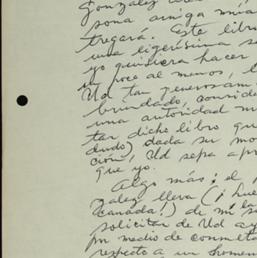 Gonzalez
sona amiga mía
tregará. Este libro
una ligerísima
yo quisiera hacer
un poco al menos, l
Ud tan generosam
brindado,
una autoridad m
tar dicho libro que
dudo) dada su mo
ción, Ud sepa a pr
que yo.
Algo más; el
zalez lleva (¡
Canadá!) de mi
solicitar de Ud ay
por medio de consulta
respecto a un